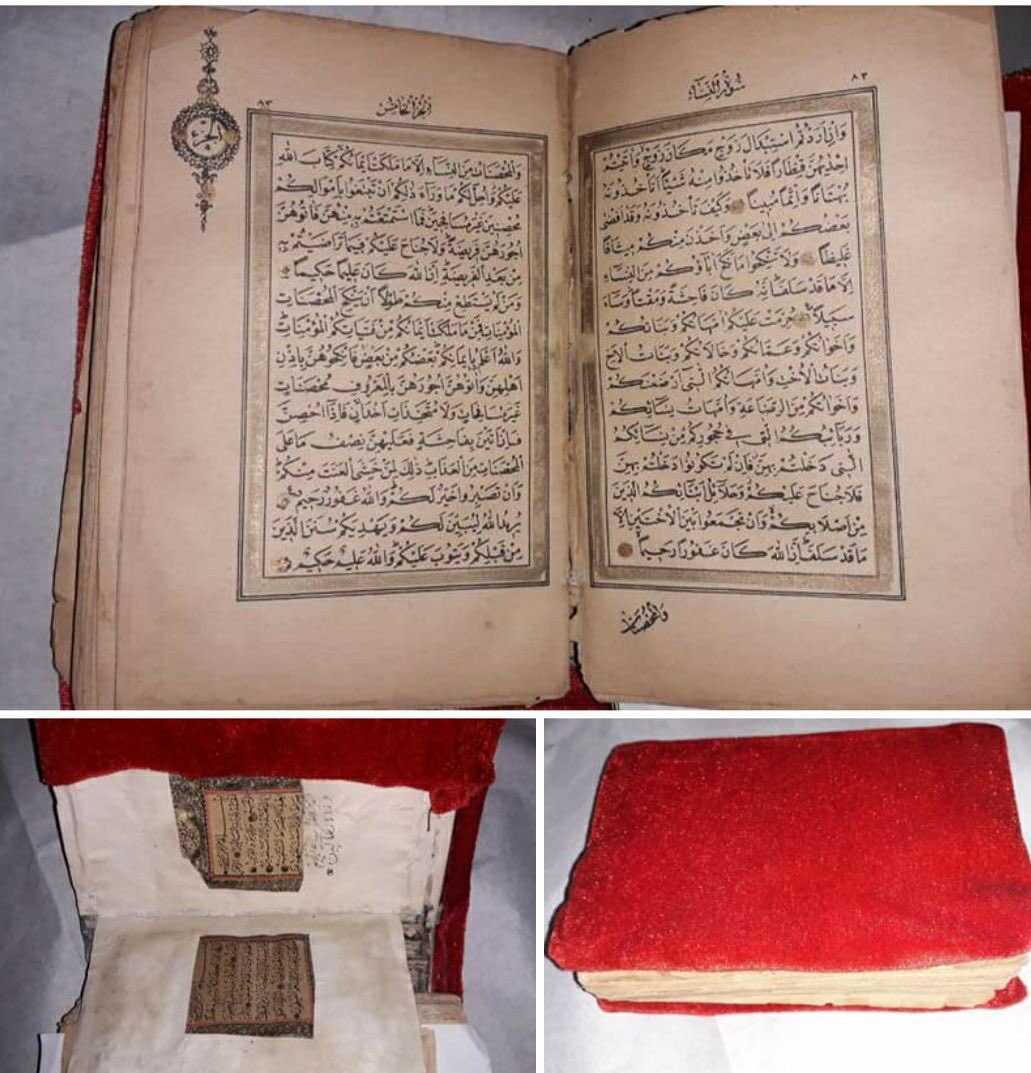 سورة النساء
٨٣
وَاِنْ اَرَدْتُمُ اسْتِبْدَالَ زَوْجٍ مَكَانَ زَوْجٍ وَاٰتَيْتُمْ
اِحْدٰيهُنَّ قِنْطَارًا فَلَا تَأْخُذُوا مِنْهُ شَيْئًا اَتَأْخُذُونَهُ
بُهْتَانًا وَاِثْمًا مُبِينًا وَكَيْفَ تَأْخُذُونَهُ وَقَدْ اَفْضٰى
بَعْضُكُمْ اِلٰى بَعْضٍ وَاَخَذْنَ مِنْكُمْ مِيثَاقًا
غَلِيظًا وَلَا تَنْكِحُوا مَا نَكَحَ اٰبَاؤُكُمْ مِنَ النِّسَاءِ
اِلَّا مَا قَدْ سَلَفَ اِنَّهُ كَانَ فَاحِشَةً وَمَقْتًا وَسَاءَ
سَبِيلًا حُرِّمَتْ عَلَيْكُمْ اُمَّهَاتُكُمْ وَبَنَاتُكُمْ
وَاَخَوَاتُكُمْ وَعَمَّاتُكُمْ وَخَالَاتُكُمْ وَبَنَاتُ الْاَخِ
وَبَنَاتُ الْاُخْتِ وَاُمَّهَاتُكُمُ الّٰتِى اَرْضَعْنَكُمْ
وَاَخَوَاتُكُمْ مِنَ الرَّضَاعَةِ وَاُمَّهَاتُ نِسَائِكُمْ
وَرَبَائِبُكُمُ الّٰتِى فِى حُجُورِكُمْ مِنْ نِسَائِكُمُ
الّٰتِى دَخَلْتُمْ بِهِنَّ فَاِنْ لَمْ تَكُونُوا دَخَلْتُمْ بِهِنَّ
فَلَا جُنَاحَ عَلَيْكُمْ وَحَلَائِلُ اَبْنَائِكُمُ الَّذِينَ
مِنْ اَصْلَابِكُمْ وَاَنْ تَجْمَعُوا بَيْنَ الْاُخْتَيْنِ اِلَّا
مَا قَدْ سَلَفَ اِنَّ اللهَ كَانَ غَفُورًا رَحِيمًا
وَالْمُحْصَنَاتُ
الجزء الخامس
٨٣
الجزء
وَالْمُحْصَنَاتُ مِنَ النِّسَاءِ اِلَّا مَا مَلَكَتْ اَيْمَانُكُمْ كِتَابَ اللهِ
عَلَيْكُمْ وَاُحِلَّ لَكُمْ مَا وَرَاءَ ذٰلِكُمْ اَنْ تَبْتَغُوا بِاَمْوَالِكُمْ
مُحْصِنِينَ غَيْرَ مُسَافِحِينَ فَمَا اسْتَمْتَعْتُمْ بِهِ مِنْهُنَّ فَاٰتُوهُنَّ
اُجُورَهُنَّ فَرِيضَةً وَلَا جُنَاحَ عَلَيْكُمْ فِيمَا تَرَاضَيْتُمْ بِهِ
مِنْ بَعْدِ الْفَرِيضَةِ اِنَّ اللهَ كَانَ عَلِيمًا حَكِيمًا
وَمَنْ لَمْ يَسْتَطِعْ مِنْكُمْ طَوْلًا اَنْ يَنْكِحَ الْمُحْصَنَاتِ
الْمُؤْمِنَاتِ فَمِنْ مَا مَلَكَتْ اَيْمَانُكُمْ مِنْ فَتَيَاتِكُمُ الْمُؤْمِنَاتِ
وَاللهُ اَعْلَمُ بِاِيمَانِكُمْ بَعْضُكُمْ مِنْ بَعْضٍ فَانْكِحُوهُنَّ بِاِذْنِ
اَهْلِهِنَّ وَاٰتُوهُنَّ اُجُورَهُنَّ بِالْمَعْرُوفِ مُحْصَنَاتٍ
غَيْرَ مُسَافِحَاتٍ وَلَا مُتَّخِذَاتِ اَخْدَانٍ فَاِذَا اُحْصِنَّ
فَاِنْ اَتَيْنَ بِفَاحِشَةٍ فَعَلَيْهِنَّ نِصْفُ مَا عَلَى
الْمُحْصَنَاتِ مِنَ الْعَذَابِ ذٰلِكَ لِمَنْ خَشِىَ الْعَنَتَ مِنْكُمْ
وَاَنْ تَصْبِرُوا خَيْرٌ لَكُمْ وَاللهُ غَفُورٌ رَحِيمٌ
يُرِيدُ اللهُ لِيُبَيِّنَ لَكُمْ وَيَهْدِيَكُمْ سُنَنَ الَّذِينَ
مِنْ قَبْلِكُمْ وَيَتُوبَ عَلَيْكُمْ وَاللهُ عَلِيمٌ حَكِيمٌ